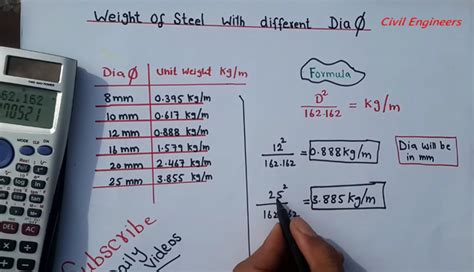 Weight of Steel with different Dia Ø
Civil Engineers
Dia Ø Unit Weight Kg/m
8 mm 0.395 Kg/m
10 mm 0.617 Kg/m
12 mm 0.888 Kg/m
16 mm 1.579 Kg/m
20 mm 2.467 Kg/m
25 mm 3.855 Kg/m
Formula
D²
162.162
= Kg/m
12²
162.162
= 0.888 Kg/m
Dia will be
in mm
25²
= 3.885 Kg/m
Subscribe
Daily
Videos